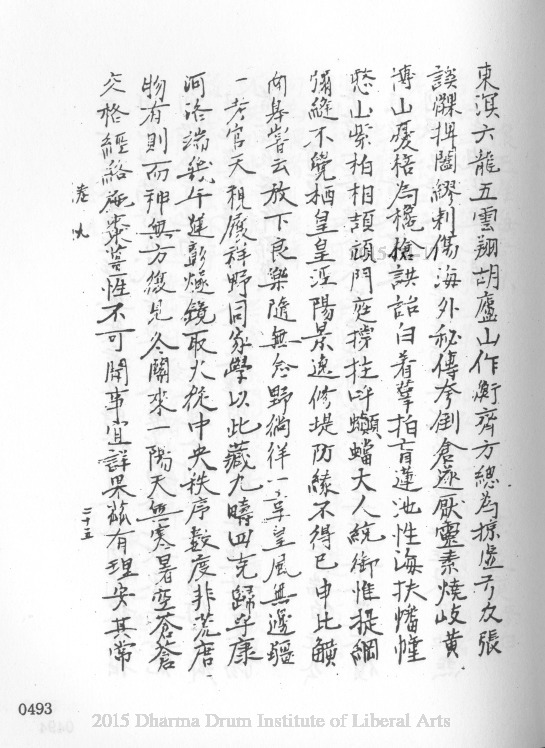 東溟六龍五雲翔胡廬山作衡齊方總為掠虛子友張
誤髁捭闔繆刺傷海外秘傳夸倒倉遂厭靈素燒岐黃
溥山憂格為欃槍訣詔白着拍盲蓮池性海扶幡幢
憨山紫柏相頡頏門庭撐拄呼大人統御惟提綱
彌縫不覺栖皇皇涇陽景逸修堤防緣不得已申比
向募嘗云放下良樂隨無念野徜徉一享皇風無邊疆
一老官天視履祥野同家學以此藏九疇四克歸平康
河洛端幾午逢鏡取火從中央秩序數度非荒唐
物有則而神無方復見冬關來一陽天無寒暑空蒼蒼
交格經絡施柬性不可聞事宜詳果然有理安其常
卷
二十五
0493
2015 Dharma Drum Institute of Liberal Arts